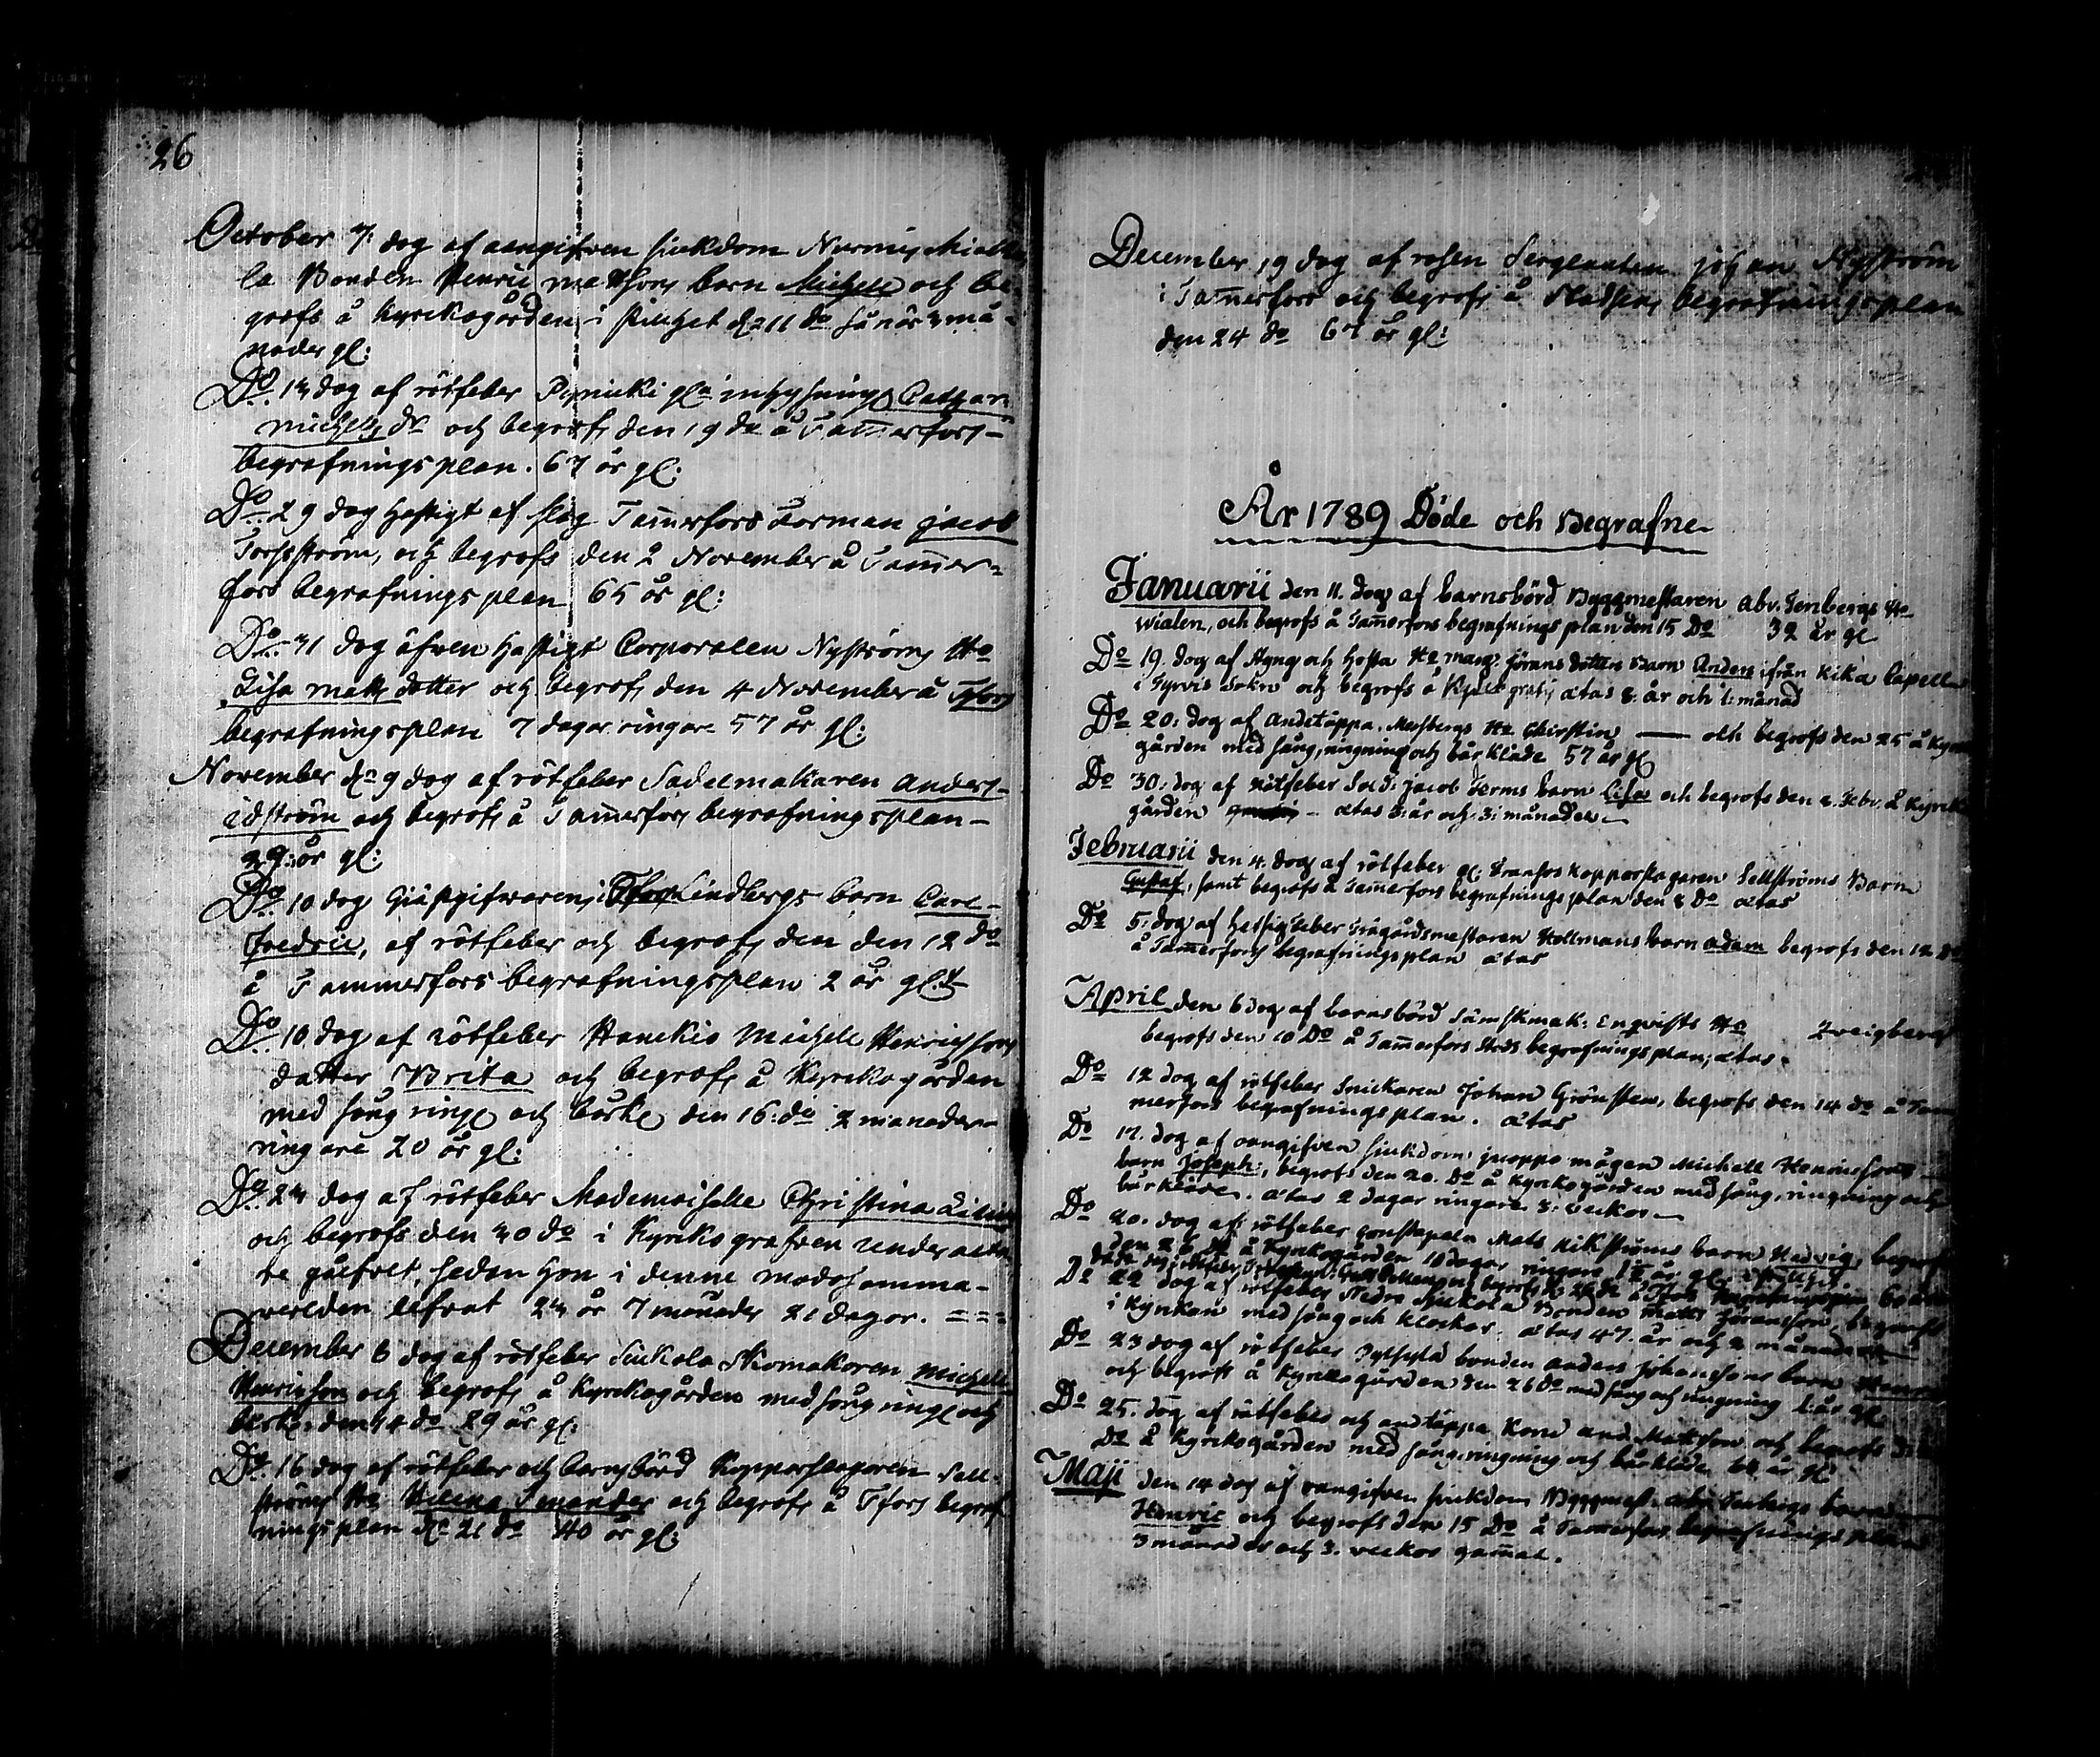 26
October 7: dag af oangifven siukdom Nurmis Miek
la Bonden Henric mattsons barn Michell och be
grofs å kyrkogården i stillhet dn 11 do 3 må
nader gl:
Do 13 dag af rötfeber Pynicki gla inhysning Cathar
michels dr och begrofs den 19 do å Tamerfors
begrafningsplan. 67 år gl:
Do 29 dag hastigt af slag Tamerfors Formän jacob
Forsström, och begrofs den 2 November å Tamer=
fors begrafnings plan 65 år gl:
Do 31 dag äfven hastigt Corporalen Nyströms Ho
Lisa matts dotter och begrofs den 4 November å Tfors
begrafningsplan 7 dagar ringare 57 år gl:
November dn 9 dag af rötfeber Sadelmakaren Anders
Edström och begrofs å Tamerfors begrafningsplan
29: år gl:
Do 10 dag Giästgifvarens i Tfors Lindbergs barn Carl
Fredric, af rötfeber och begrofs den den 12 do
å Tammerfors begrafningsplan 2 år gl.
Do 10 dag af rötfeber Hanckio Michell Henrichsons
datter Brita och begrofs å Kyrkogården
med sång ring och bårkl den 16: do 2 månader
ringare 20 år gl:
Do 23 dag af rötfeber Mademoiselle Christina
och begrofs den 30 do i Kyrko grafven under
te gålfvet, sedan hon i denne
verlden lefvat 23 år 7 månader 21 dagar. = = =
December 6 dag af rötfeber Siukola Skomakaren Michell
Henricson och begrofs å Kyrkogården med sång ring och
bårkl: den 14 do 29 år gl:
Do 16 dag af rötfeber och barnsbörd Kopparslagaren Sell
ströms Ho Helena Smander och begrofs å Tfors begraf
ningsplan dn 21 do 40 år gl:
December 19 dag af rosen Sergeanten johan Nyström
i Tamerfors och begrofs å Stadsens begrafningsplan
den 24 do 67 år gl:
År 1789 Döde och Begrafne
Januarii den 11. dag af barnsbörd Byggmestaren abr. Tenbergs Ho
wialen, och begrofs å Tamerfors begrafnings plan den 15 Do 32 år gl
Do 19. dag af Styng och hosta Ho marg. Görans dotters Barn Anders ifrån Kika Capell
i Tyrvis Sokn och begrofs å Kyrko ætas 8: år och 1: månad
Do 20: dag af andetäppa. Ho Christin — och begrofs den 25 å Kyrko
gården med sång, ringning och bår Kläde 57 år gl
Do 30: dag af Rötfeber Sold: jacob Ferms barn Lisa och begrofs den 2. Febr. å Kyrko
gården ætas 3: år och 3: månader
Februarii den 4. dag af rötfeber gl: Kopparslagaren Sellströms Barn
Gustaf, samt begrofs å Tamerfors begrafnings plan den 8 Do ætas
Do 5: dag af hetsig feber Trägårdsmestaren Hollmans barn adam begrofs den 12 Do
å Tamerfors begrafningsplan ætas
April den 6 dag af barnsbörd Sämskmak: Enqvists Ho Zveigbergk
begrofs den 10 Do å Tamerfors Stads begrafnings plan, ætas.
Do 12 dag af rötfeber Snickaren Johan Grönsten, begrofs den 14 do å Tam
merfors begrafningsplan. ætas
Do 17. dag af oangifven siukdom juoppo mågen Michell Henricssons
barn Joseph, begrofs den 20. Do å Kyrkogården med sång, ringning och
bårkläde. ætas 2 dagar ringare 3: veckor
Do 20. dag af rötfeber Mats Wikströms barn Hedvig, begrofs
den 26 å Kyrkogården 10 dagar ringare 1 år gl:
Do 22 dag af rötfeber Nedre Siukola Bonden Matts Göransson, begrofs
i Kyrkan med sång och klockor. ætas 47. år och 2 månader
Do 23 dag af rötfeber bonden anders johanssons barn
och begrofs å Kyrkogården den 26 do med sång och ringning 1: år gl
Do 25. dag af rötfeber och andtäppa And: Mattsson och begrofs
Do å Kyrkogården med sång, ringning och bårkläde år gl
Maji den 14 dag af oangifven siukdom Byggmest: abr. Tenbergs barn
Henric och begrofs den 15 Do å Tamerfors begrafnings plan
3 månader och 3. veckor gamal.